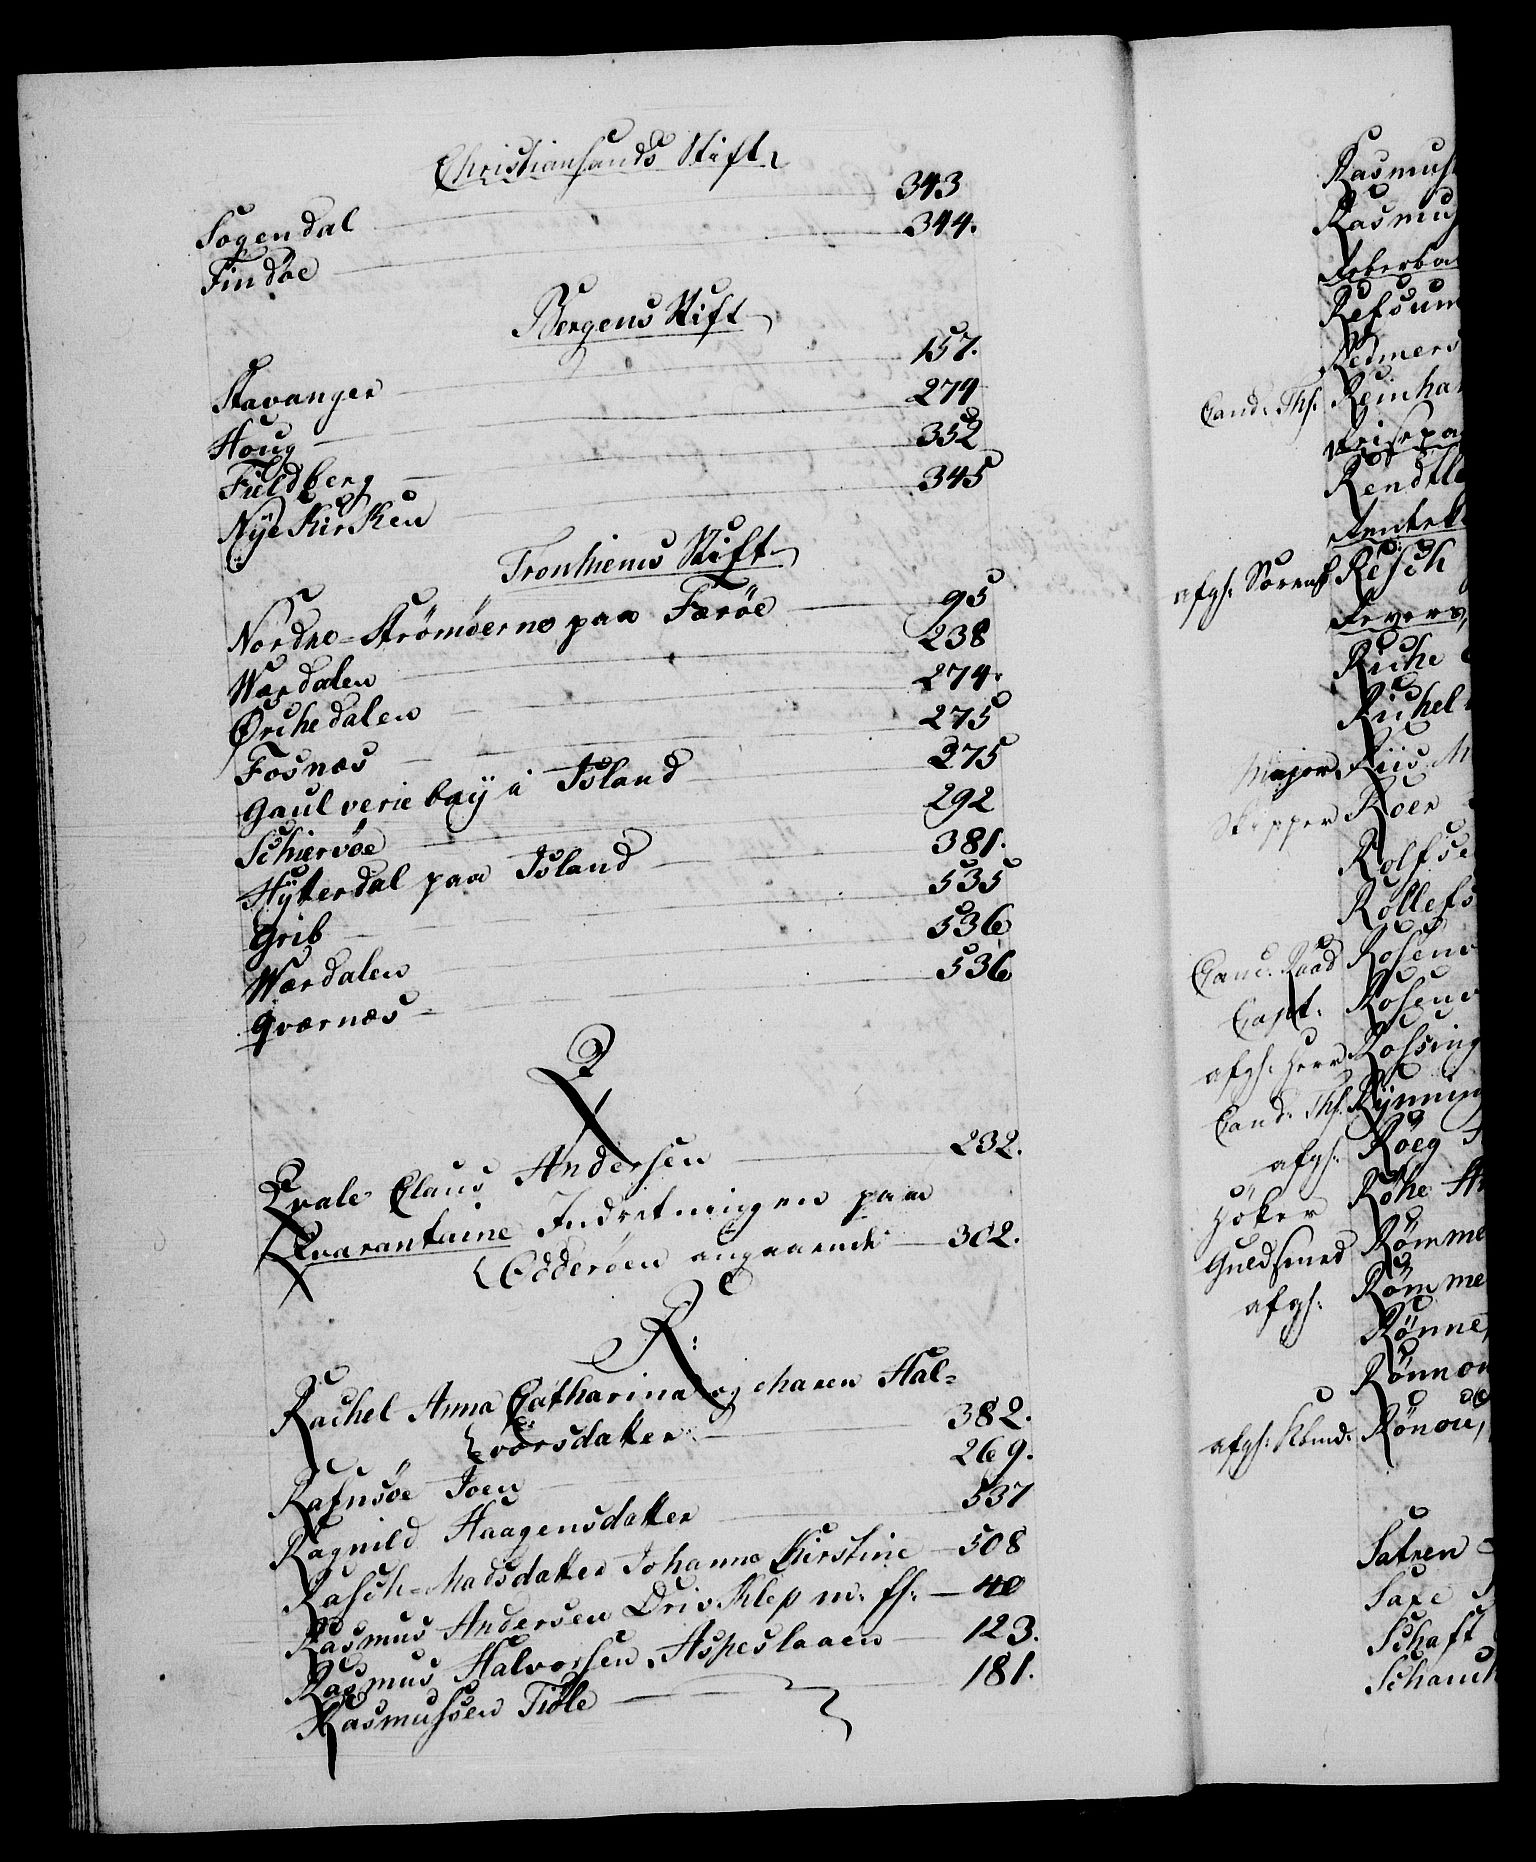 Christiansands Stift
Sogendal 343
Findöe 344.
Bergens Stift
Stavanger 157.
Houg 274
Fieldberg 352
Nÿe Kirken 345
Tronhiems Stift
Nordre=Strömöerne paa Færöe 95
Wærdalen 238
Ørchedalen 274.
Fosnæs 275
Gaulveriebaÿ i Island 275
Schiervöe 292
Hÿterdal paa Island 381.
Grib 535
Wærdalen 536
Qværnæs 536
Q
Qvale Claus Andersen 232.
Qvarantaine Indretningen paa
Odderöen angaaende 302.
R:
Rachel Anna Catharina og Maren Hal=
vorsdatter 382.
Rafnsöe Joen 269.
Ragnild Haagensdatter 537
Rasch=Madsdatter Johanne Kirstine 508
Rasmus Andersen Drivklep m. fl. 40
Rasmus Halvorsen Aspeslaaen 123.
Rasmussen Tiöle 181.
Rasmuss
Rasmus
Refsum
Redmers
Cand. Ths. Reinhar
Rendtle
afgh: Sorensk Resch
Revers,
Riche
Richel
Major Riis M
Skipper Roer
Rolfse
Rollefs
Canc. Raad Rosenv
Capt. Rosenv
afgh: Herr Rossing
Cand. Ths. Rÿnning
afgh. Röeg
Höker Röhe An
Guldsmed Römme
afgh. Römme
Rönne,
Rönnou
afgh: Kbmd. Rönou,
Satren
Saxe
Schaft
Schanch